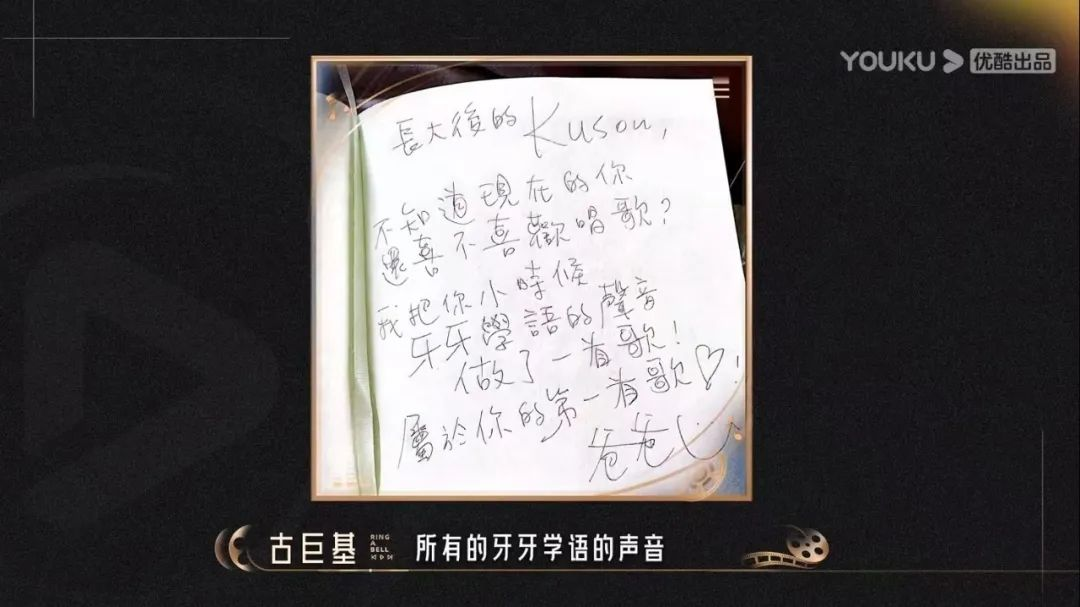 YOUKU 优酷出品
長大後的Kuson,
不知道現在的你
還喜不喜歡唱歌?
我把你小時候
牙牙學語的聲音
做了一首歌!
屬於你的第一首歌♡!
爸爸
古巨基 所有的牙牙学语的声音
RING
A
BELL